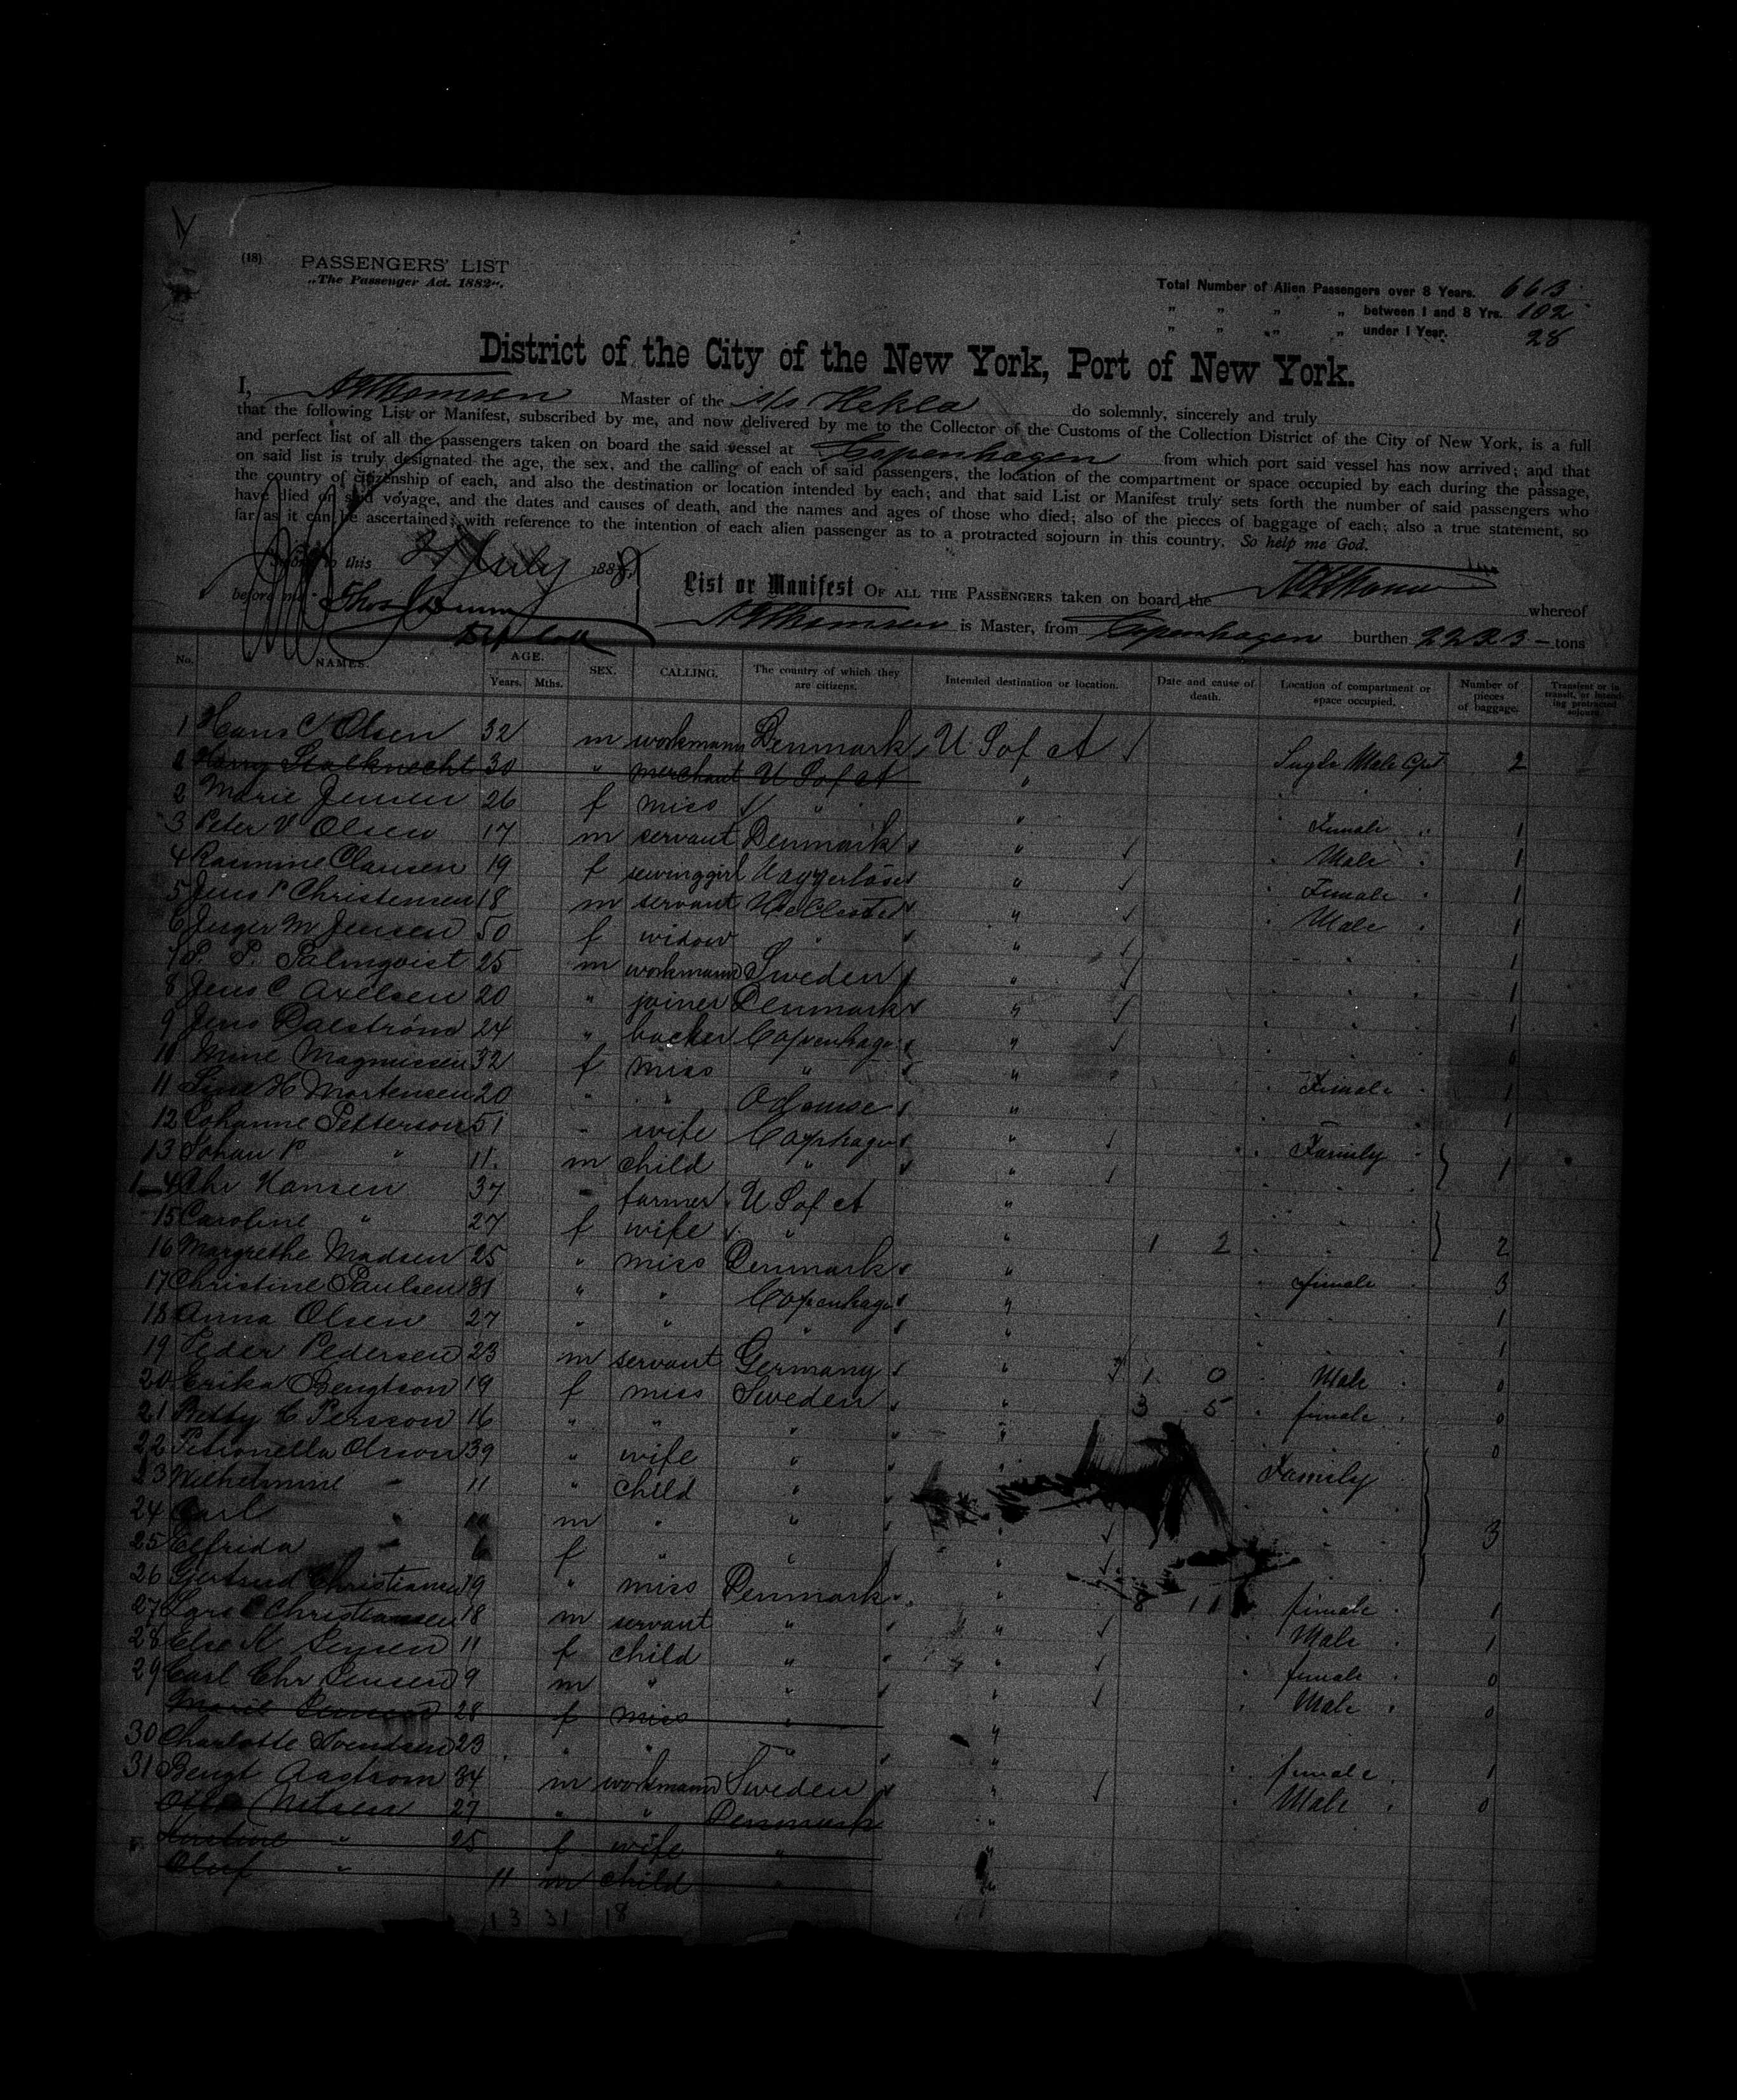 (18)
PASSENGERS' LIST
„The Passenger Act. 1882“.
Total Number of Alien Passengers over 8 Years. 663
„ „ „ „ between 1 and 8 Yrs. 102
„ „ „ „ under 1 Year. 28
District of the City of the New York, Port of New York.
I, Thomsen Master of the s/s Hekla do solemnly, sincerely and truly
that the following List or Manifest, subscribed by me, and now delivered by me to the Collector of the Customs of the Collection District of the City of New York, is a full
and perfect list of all the passengers taken on board the said vessel at Copenhagen from which port said vessel has now arrived; and that
on said list is truly designated the age, the sex, and the calling of each of said passengers, the location of the compartment or space occupied by each during the passage,
the country of citizenship of each, and also the destination or location intended by each; and that said List or Manifest truly sets forth the number of said passengers who
have died on said voyage, and the dates and causes of death, and the names and ages of those who died; also of the pieces of baggage of each; also a true statement, so
far as it can be ascertained, with reference to the intention of each alien passenger as to a protracted sojourn in this country. So help me God.
this July 1888,
before me
List or Manifest OF ALL THE PASSENGERS taken on board the whereof
Thomsen is Master, from Copenhagen burthen 2223 - tons
No. NAMES. AGE. Years. Mths. SEX. CALLING. The country of which they are citizens. Intended destination or location. Date and cause of death. Location of compartment or space occupied. Number of pieces of baggage. Transient or in transit, or intending protracted sojourn.
1 Hans C Olsen 32 m workmann Denmark U S of A Male Cpt 2
2 Harry Stalknecht 30 " merchant U S of A "
2 Marie Jensen 26 f miss " " Female " 1
3 Peter V Olsen 17 m servant Denmark " Male " 1
4 Rasmine Clausen 19 f sewinggirl " Female " 1
5 Jens P Christensen 18 m servant " Male " 1
6 Inger M Jensen 50 f widow " " 1
7 P. P. Palmqvist 25 m workmann Sweden " 1
8 Jens C Axelsen 20 " joiner Denmark " 1
9 Jens Dalstrøm 24 " backer Copenhagn "
10 Mine Magnussen 32 f miss " " Female " 1
11 Sine H Mortensen 20 " " Odense " 1
12 Johanne Petterson 51 " wife Cophagen " Family "
13 Johan P " 11 m child " " 1
14 Chr Hansen 37 " farmer U S of A "
15 Caroline " 27 f wife " " 1 2 2
16 Margrethe Madsen 25 " miss Denmark " female " 3
17 Christine Paulsen 31 " " Copenhagn " 1
18 Anna Olsen 27 " " " " 1
19 Peder Pedersen 23 m servant Germany " 1 0 Male " 0
20 Erika Bengtson 19 f miss Sweden " 3 5 female " 0
21 Betty C Persson 16 " " " " 0
22 Petronella Olsson 39 " wife " " Family
23 Wilhelmine " 11 " child " "
24 Carl " m " " " 3
25 Elfrida " 6 f " " "
26 Gertrud Christiansen 19 " miss Denmark " 8 11 female " 1
27 Lars C Christiansen 18 m servant " " Male " 1
28 Else K Jensen 11 f child " " female " 0
29 Carl Chr Jensen 9 m " " " Male " 0
Marie 28 f miss " "
30 Charlotte Svendsen 23 " " " " female " 1
31 Bengt Aastrom 34 m workmann Sweden " Male " 0
Nilsen 27 " " Denmark "
Kirstine " 25 f wife " "
Oluf " 11 m child " "
13 31 18